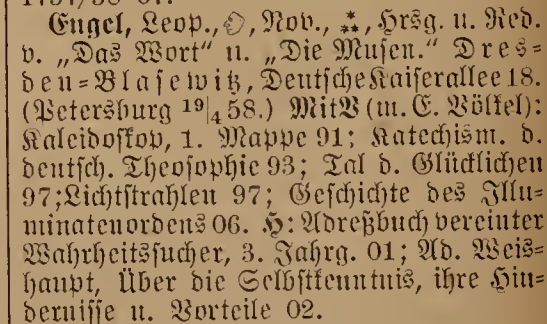 Engel, Leop., Nov., ⁂, Hrsg. u. Red.
v. „Das Wort“ u. „Die Musen.“ Dres=
den=Blasewitz, Deutsche Kaiserallee 18.
(Petersburg 19|4 58.) MitV (m. E. Völkel):
Kaleidoskop, 1. Mappe 91; Katechism. d.
deutsch. Theosophie 93; Tal d. Glücklichen
97; Lichtstrahlen 97; Geschichte des Illu=
minatenordens 06. H: Adreßbuch vereinter
Wahrheitssucher, 3. Jahrg. 01; Ad. Weis=
haupt, Über die Selbstkenntnis, ihre Hin=
dernisse u. Vorteile 02.